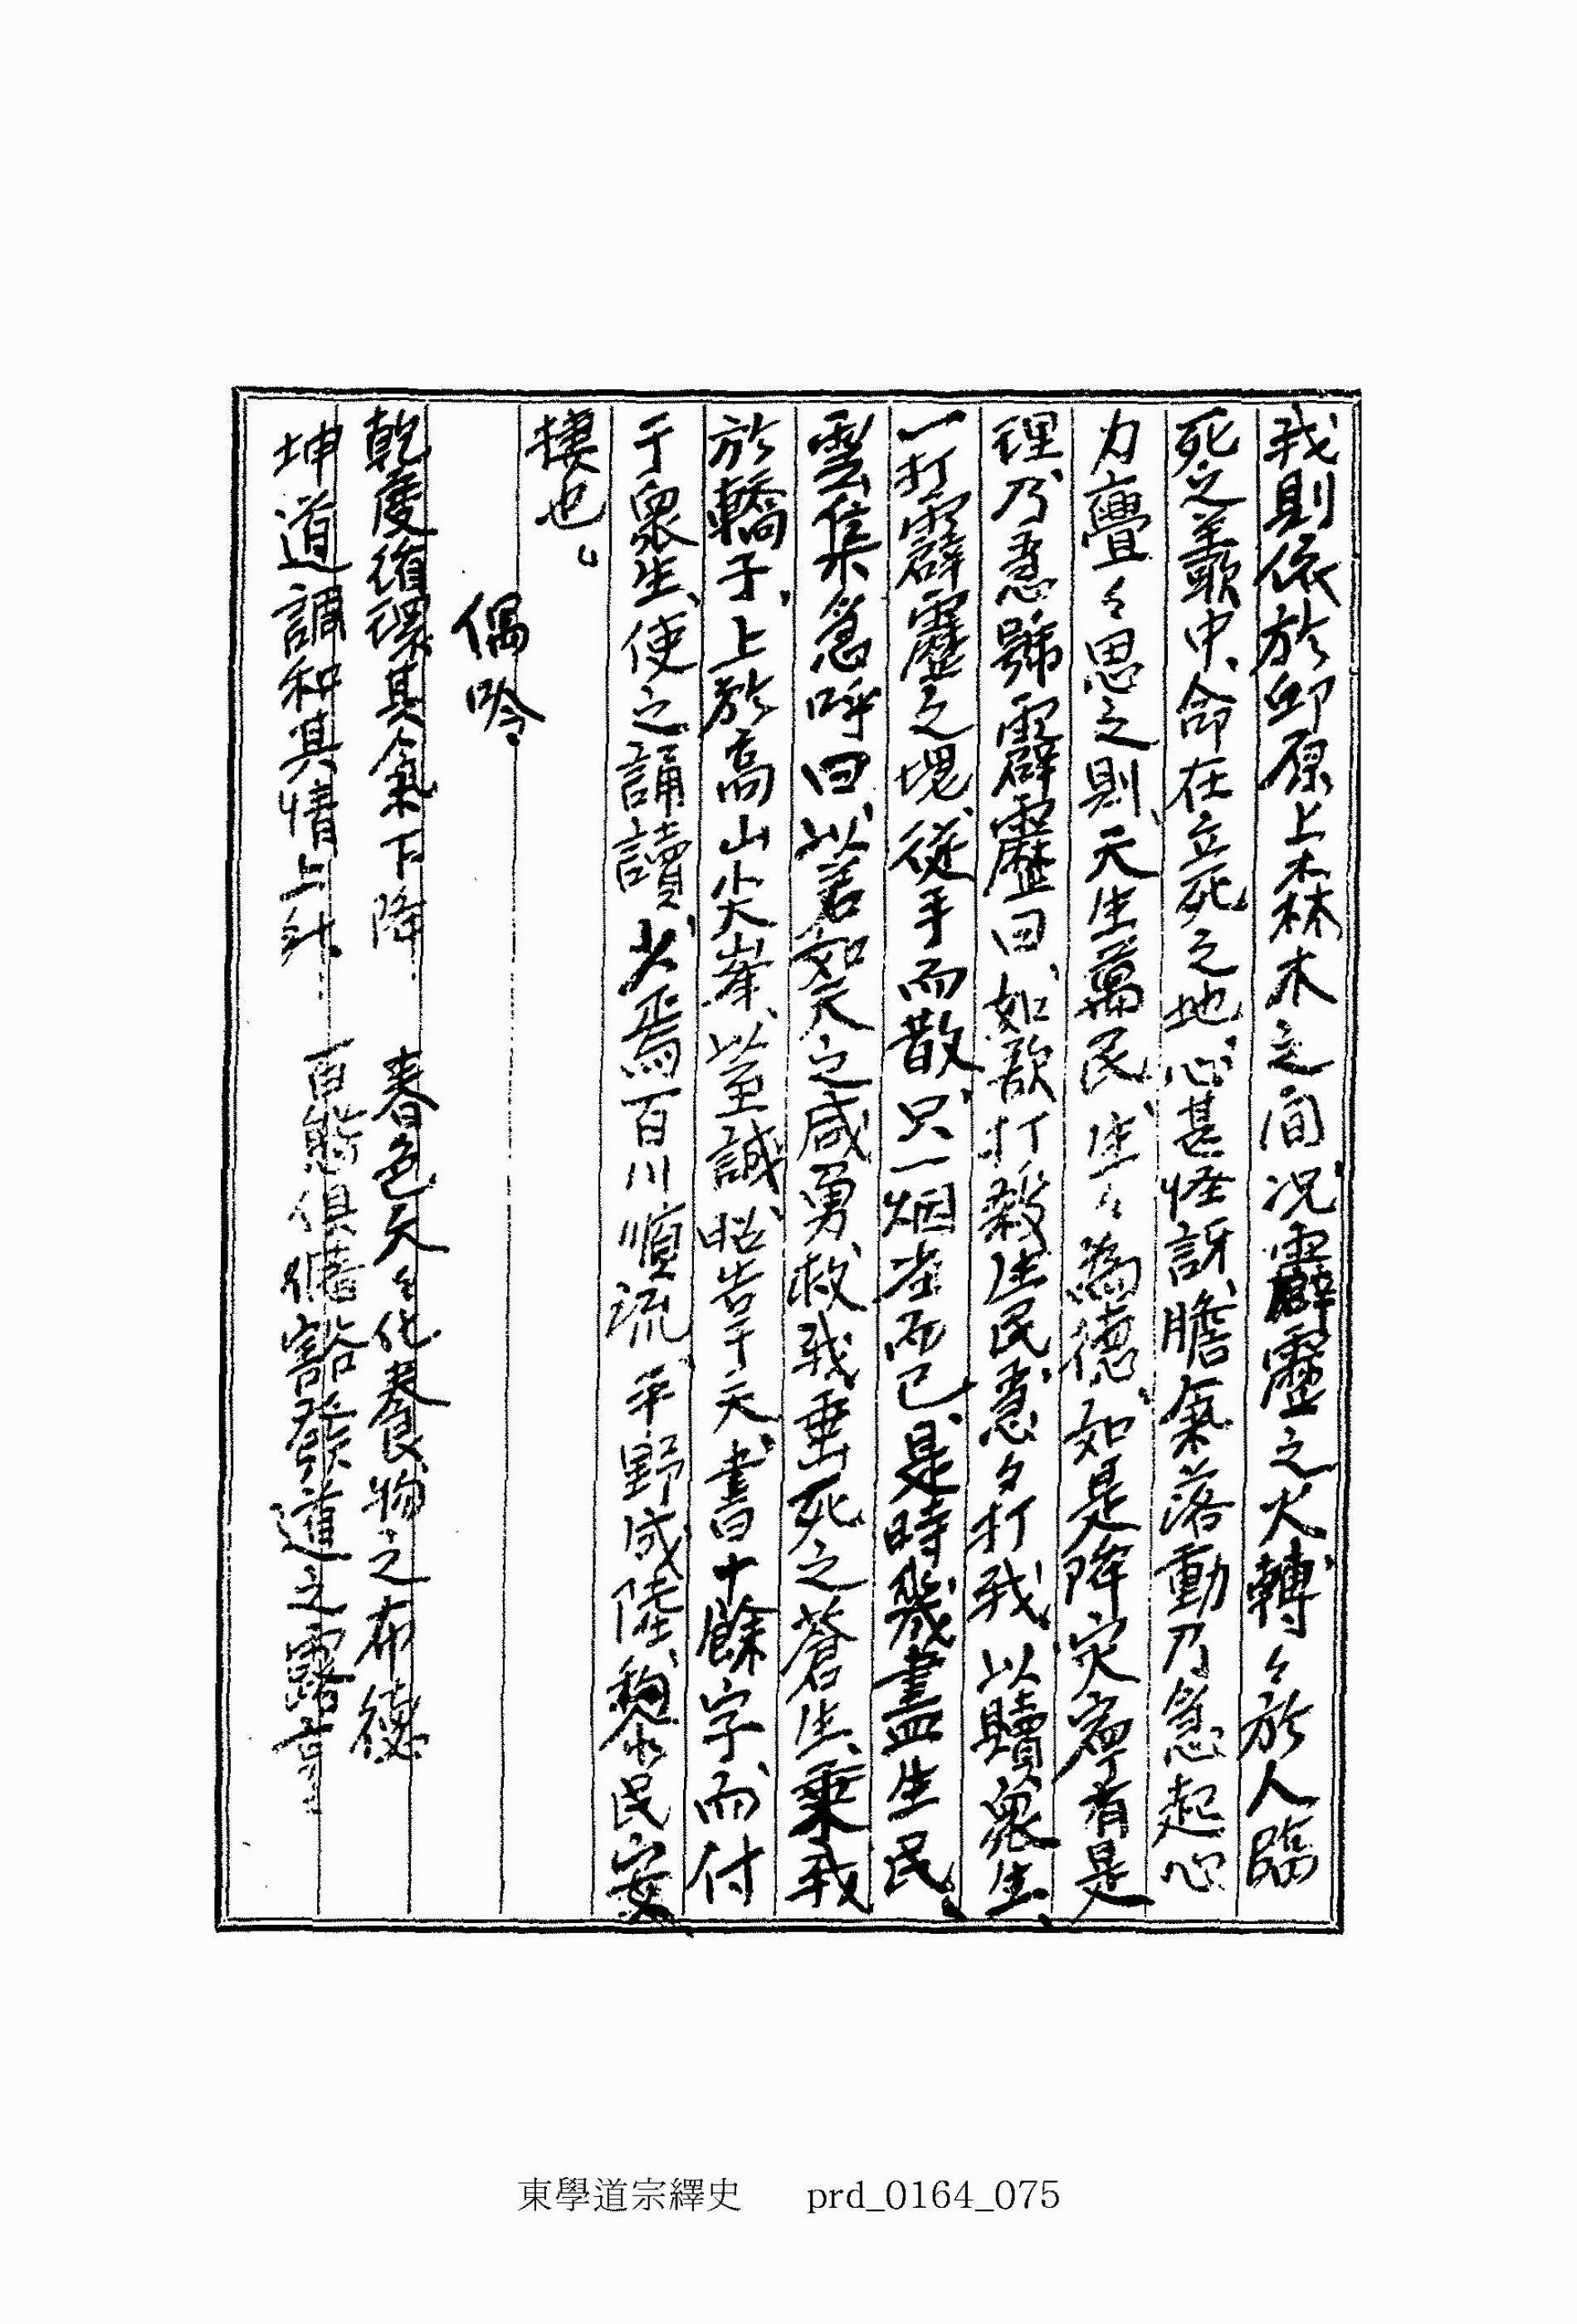 我則依於卯原上森林木之間、況霹靂之火轉々於人臨
死之叢中、命在立死之地、心甚怪訝、膽氣落動乃急起心
力亹々思之則、天生萬民、生々爲德、如是降灾寧有是
理、乃急號霹靂曰、如欲打殺生民、急々打我、以贖衆生、
一打霹靂之塊、從手而散、只一烟光而已、是時幾盡生民、
雲集急呼曰、以若如天之威勇救我垂死之蒼生、乘我
於轎子、上於高山尖峯、以至誠、昭告于天、書十餘字、而付
于衆生、使之誦讀、少焉百川順流、平野成陸、黎民安
棲也。
偶吟
乾度循環其氣下降 春色天々化養物之布德
坤道調和其情上升 百態俱備豁發道之露章
東學道宗繹史 prd_0164_075